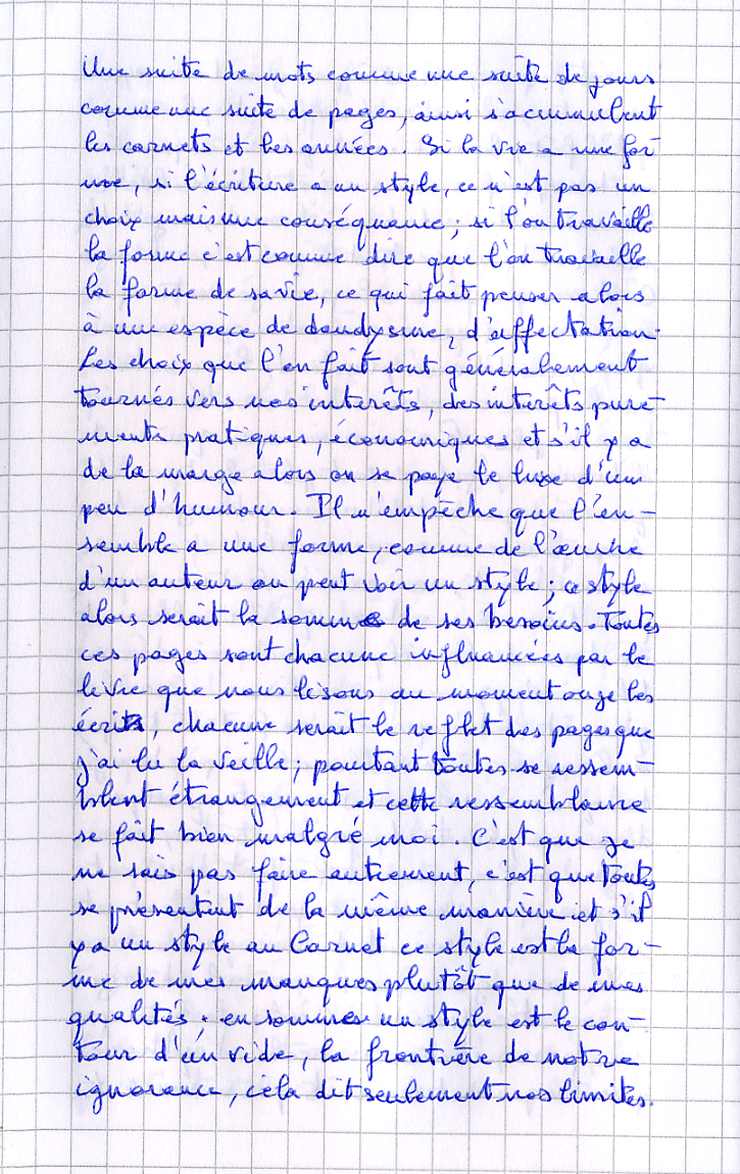 Une suite de mots comme une suite de jours
comme une suite de pages, ainsi s'accumulent
les carnets et les années. Si la vie a une for-
me, si l'écriture a un style, ce n'est pas un
choix mais une conséquance ; si l'on travaille
la forme c'est comme dire que l'on travaille
la forme de sa vie, ce qui fait penser alors
à une espèce de dandysme, d'affectation.
Les choix que l'on fait sont généralement
tournés vers nos interêts, des interêts pure-
ments pratiques, économiques et s'il y a
de la marge alors on se paye le luxe d'un
peu d'humour. Il n'empêche que l'en-
semble a une forme, comme de l'œuvre
d'un auteur on peut voir un style ; ce style
alors serait la somme de ses besoins. Toutes
ces pages sont chacune influancées par le
livre que nous lisons au moment ou je les
écrits, chacune serait le reflet des pages que
j'ai lu la veille ; pourtant toutes se ressem-
blent étrangement et cette ressemblance
se fait bien malgré moi. C'est que je
ne sais pas faire autrement, c'est que toutes
se présentent de la même manière et s'il
y a un style au Carnet ce style est la for-
me de mes manques plutôt que de mes
qualités. en somme un style est le con-
tour d'un vide, la frontière de notre
ignorance, cela dit seulement nos limites.